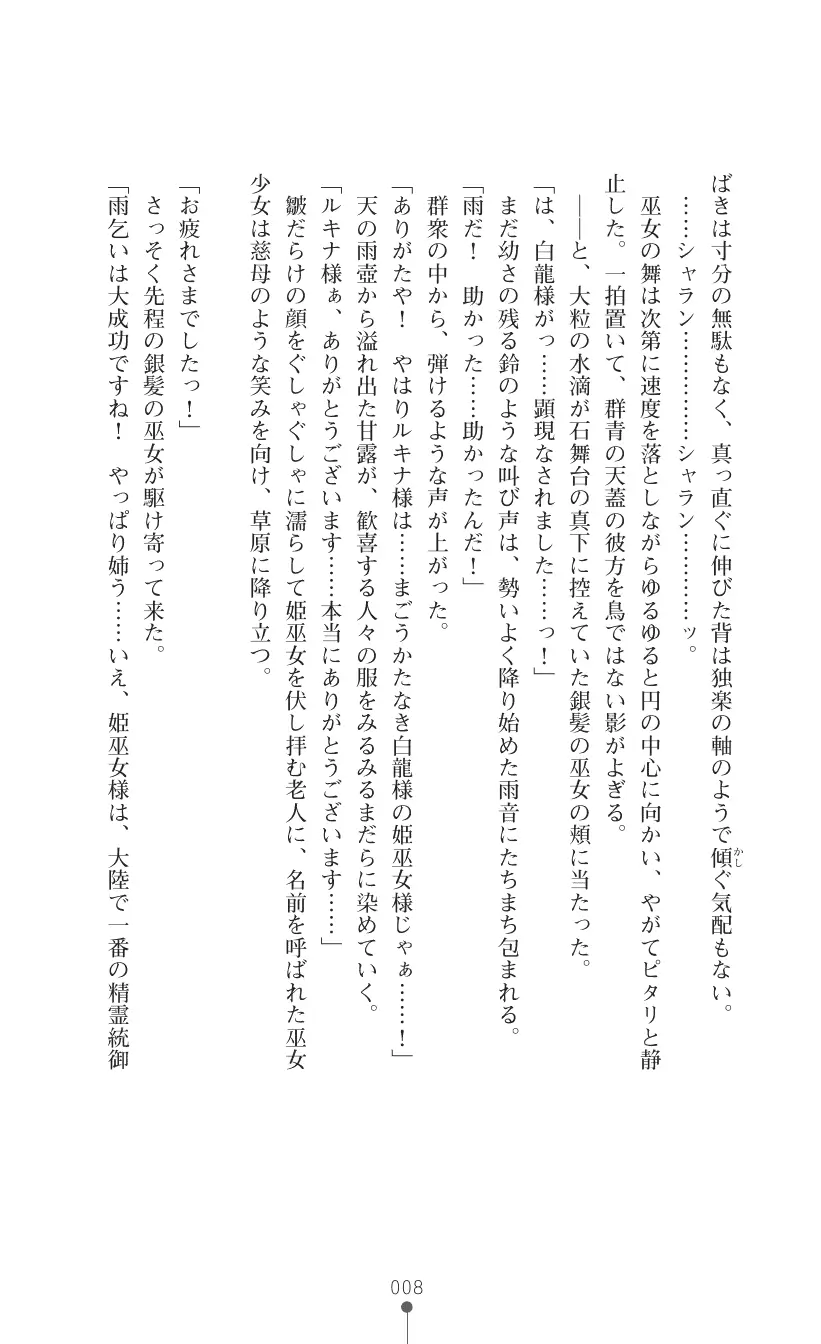 ばきは寸分の無駄もなく、真っ直ぐに伸びた背は独楽の軸のようで傾ぐ気配もない。
かし
……シャラン…………シャラン…………ッ。
巫女の舞は次第に速度を落としながらゆるゆると円の中心に向かい、やがてピタリと静
止した。一拍置いて、群青の天蓋の彼方を鳥ではない影がよぎる。
――と、大粒の水滴が石舞台の真下に控えていた銀髪の巫女の頬に当たった。
「は、白龍様がっ……顕現なされました……っ！」
まだ幼さの残る鈴のような叫び声は、勢いよく降り始めた雨音にたちまち包まれる。
「雨だ！　助かった……助かったんだ！」
群衆の中から、弾けるような声が上がった。
「ありがたや！　やはりルキナ様は……まごうかたなき白龍様の姫巫女様じゃぁ……！」
天の雨壺から溢れ出た甘露が、歓喜する人々の服をみるみるまだらに染めていく。
「ルキナ様ぁ、ありがとうございます……本当にありがとうございます……」
皺だらけの顔をぐしゃぐしゃに濡らして姫巫女を伏し拝む老人に、名前を呼ばれた巫女
少女は慈母のような笑みを向け、草原に降り立つ。
「お疲れさまでしたっ！」
さっそく先程の銀髪の巫女が駆け寄って来た。
「雨乞いは大成功ですね！　やっぱり姉う……いえ、姫巫女様は、大陸で一番の精霊統御
008